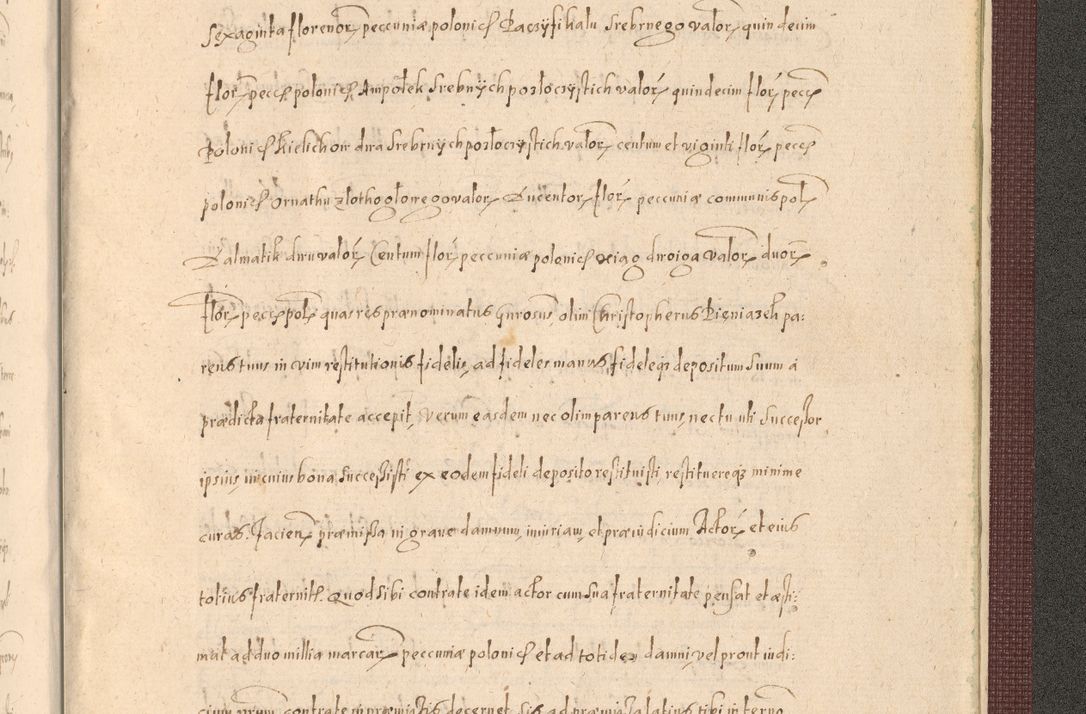 Sexaginta florenor, peccuniæ polonich Paczyfikalu Srebrnego valor, quindecim
flor, pecch polonich Ampołek Srebnÿch pozłoczÿstich valor, quindecim flor, pecch
Polonich Kielichow dwa Srebrnÿch pozłoczÿstich valor, centum et viginti flor, pecch
polonich Ornathu zlothogłowego valor, Ducentor, flor, peccuniæ communis pol
Dalmatik dwu valor, Centum flor, peccuniæ polonich xiąg dwoiga valor, duor,
flor, pecch polch quas res prænominatus Gnrosus, olim Christophorus Pieniążek pa:
rens tuus in cuim restitutionis fidelis, ad fideles manus, fideleq; depositum suum a
prædicta fraternitate accepit, Verum easdem nec olim parens tuus, nec tu uti Successor
ipsius, in cuius bona Successisti ex eodem fideli deposito restituisti, restituereq; minime
curas. Jacien, præmissa in graue damnum, iniuriam, et præiudicium Actor, et eius
totius fraternith. Quod sibi contrate idem actor cum sua fraternitate pensat et æsti:
mat ad duo millia marcar, peccuniæ polonich et ad totidem damni, vel prout iudi:
cium contrate in præmissis decernet. Sis ad præmissa latius tibi in termo